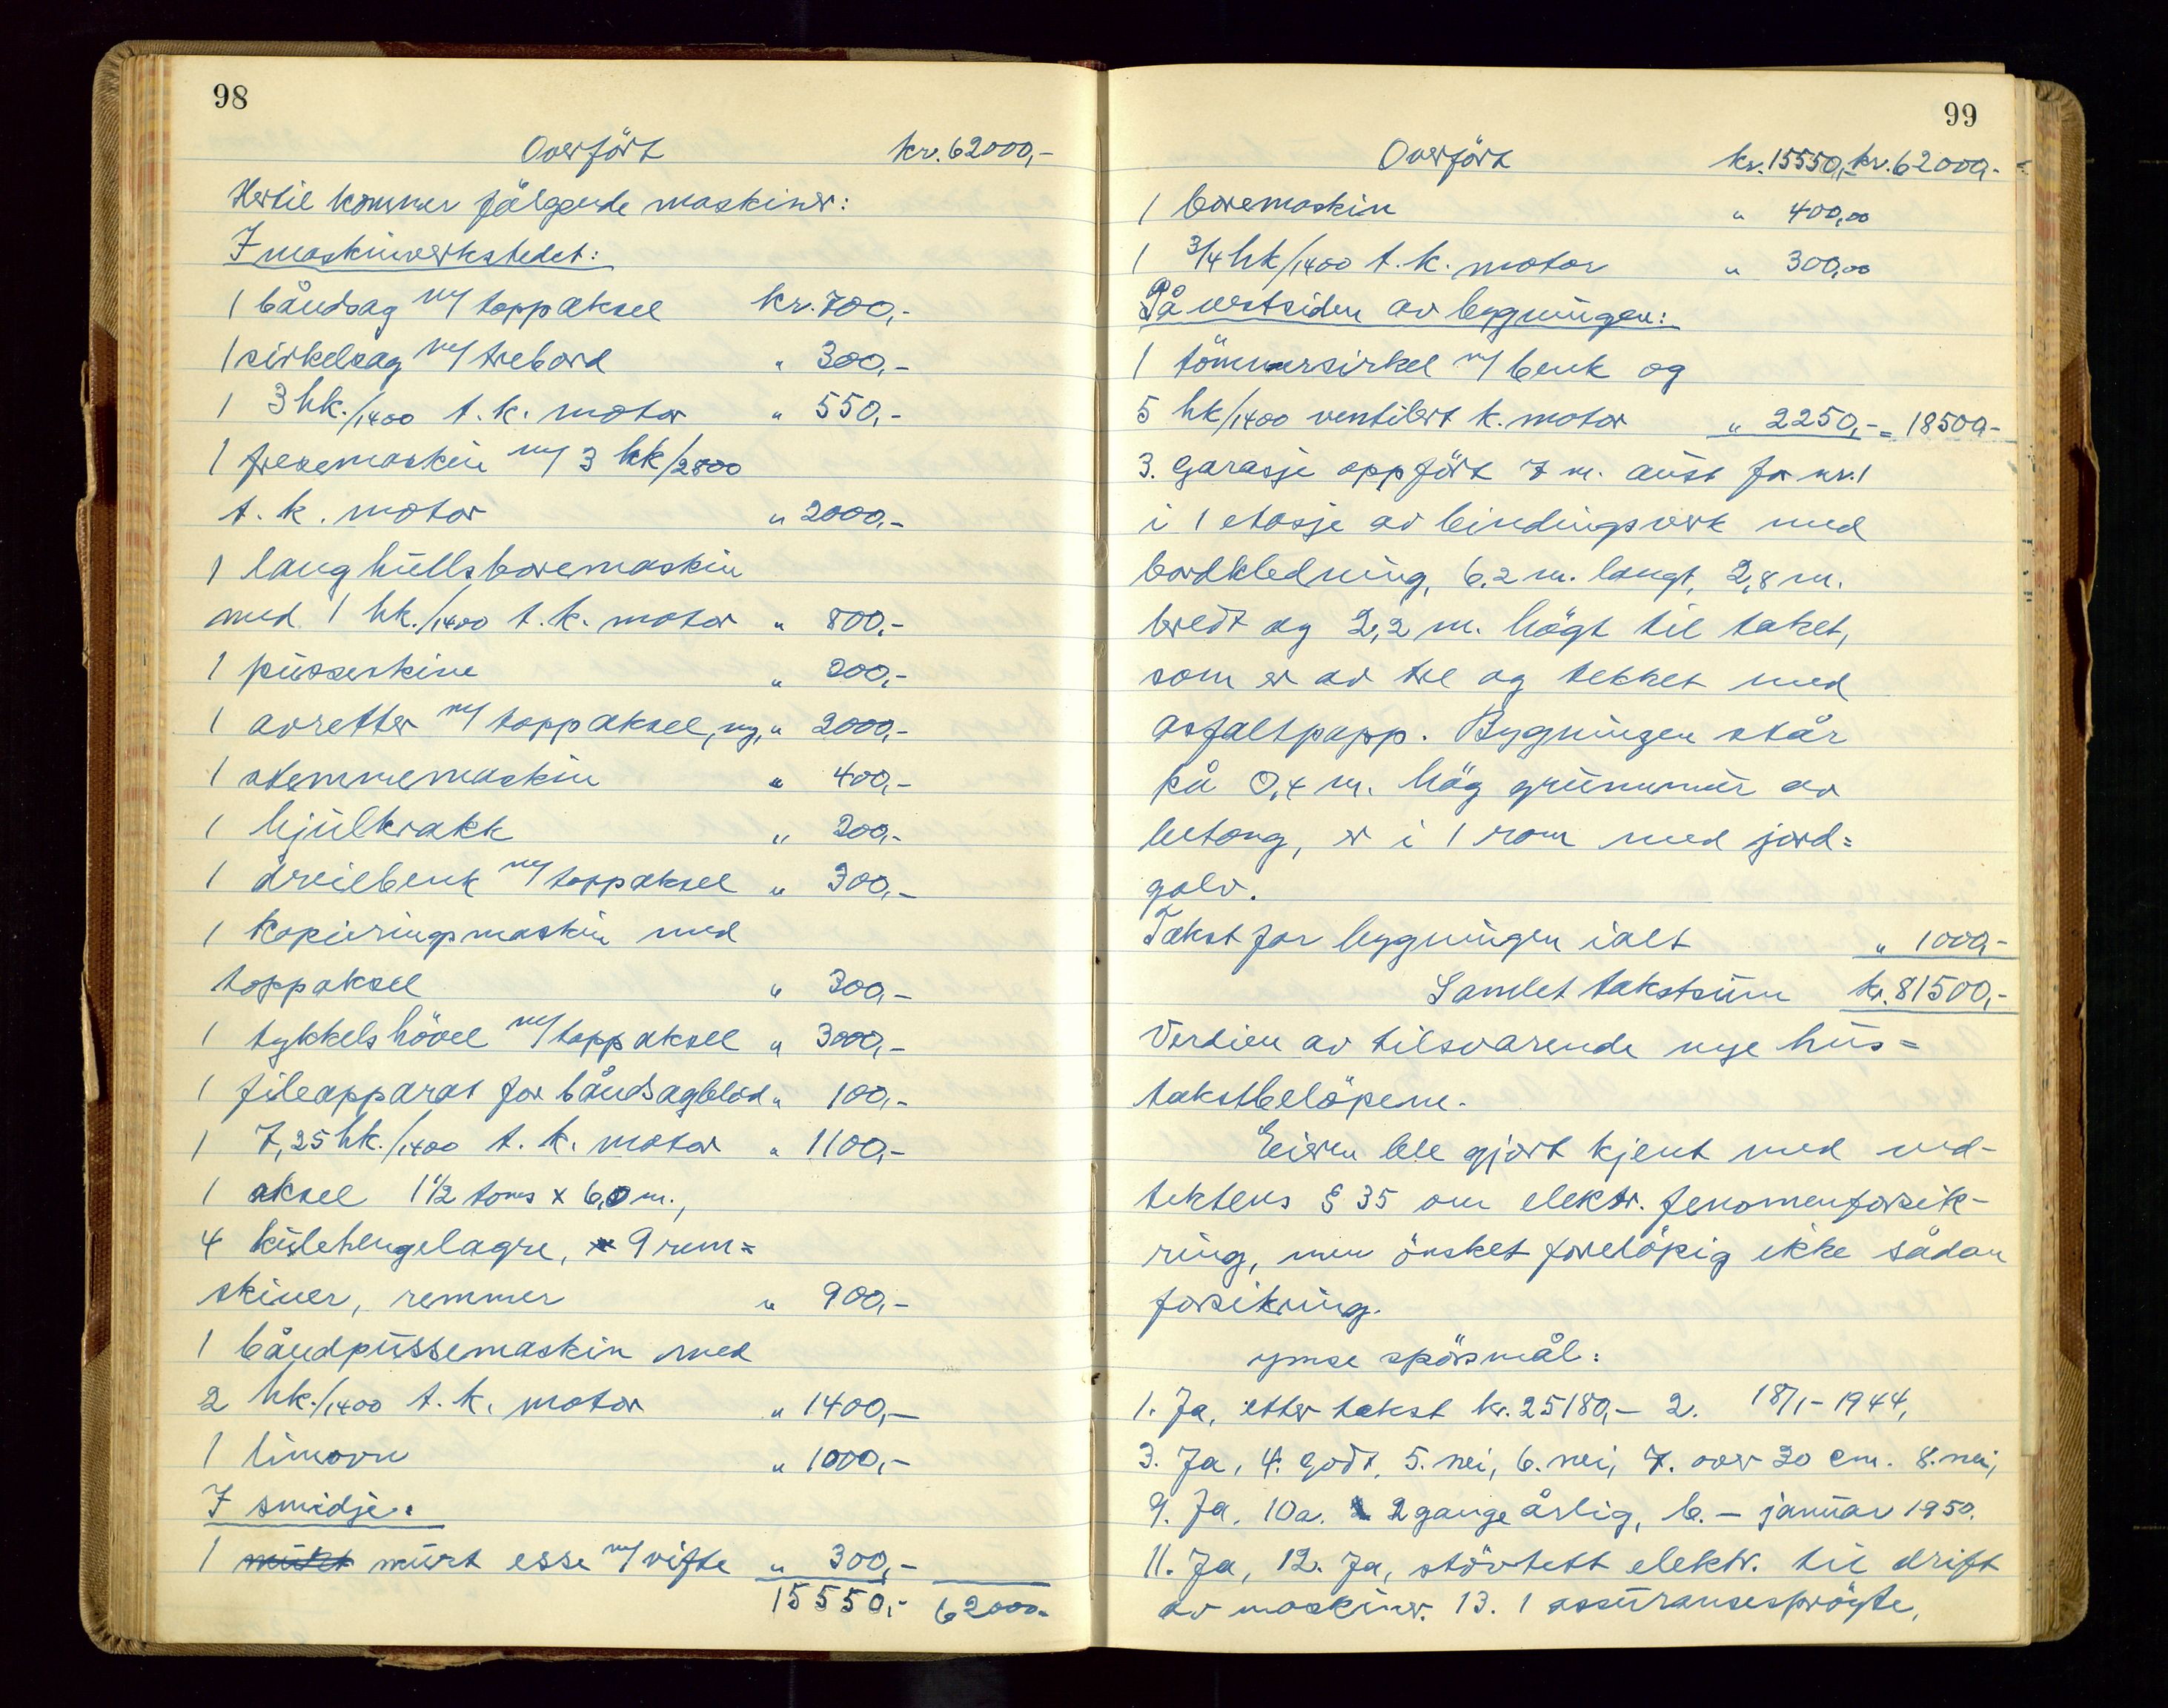 98
Overfört kr. 62000,-
Hertil kommer fölgende maskiner:
I maskinverkstedet:
1 båndsag m/ toppaksel kr. 700,-
1 sirkelsag m/ trebord " 300,-
1 3 hk./1400 t. k. motor " 550,-
1 fresemaskin m/ 3 hk/2800
t. k. motor " 2000,-
1 langhullsboremaskin
med 1 hk./1400 t. k. motor " 800,-
1 pusseskive " 200,-
1 avretter m/ toppaksel, ny, " 2000,-
1 stemmemaskin " 400,-
1 hjulkrakk " 200,-
1 dreiebenk m/ toppaksel " 300,-
1 kopieringsmaskin med
toppaksel " 300,-
1 tykkelshövel m/ toppaksel " 3000,-
1 fileapparat for båndsagblad " 100,-
1 7,25 hk./1400 t. k. motor " 1100,-
1 aksel 1 1/2 toms x 6,0 m.,
4 kulehengelagre, 9 rem=
skiver, remmer " 900,-
1 båndpussemaskin med
2 hk./1400 t. k. motor " 1400,-
1 limovn " 1000,-
I smidje:
1 murt esse m/ vifte " 300,-
15550,- 62000,-
99
Overfört kr. 15550,- kr. 62000,-
1 boremaskin " 400,00
1 3/4 hk/1400 t. k. motor " 300,00
På vestsiden av bygningen:
1 tömmersirkel m/ benk og
5 hk/1400 ventilert k. motor " 2250,- = 18500,-
3. Garasje oppfört 7 m. aust for nr. 1
i 1 etasje av bindingsverk med
bordkledning, 6.2 m. langt, 2,8 m.
bredt og 2,2 m. högt til taket,
som er av tre og tekket med
asfaltpapp. Bygningen står
på 0,4 m. hög grunnmur av
betong, er i 1 rom med jord=
golv.
Takst for bygningen ialt " 1000,-
Samlet takstsum kr. 81500,-
Verdien av tilsvarende nye hus =
takstbelöpene.
Eieren ble gjort kjent med ved-
tektens § 35 om elektr. fenomenforsik-
ring, men önsket forelöpig ikke sådan
forsikring.
Ymse spörsmål:
1. Ja, etter takst kr. 25180,- 2. 18/1-1944,
3. Ja, 4. godt, 5. nei, 6. nei, 7. over 30 cm. 8. nei,
9. Ja, 10a. 2 gange årlig, b. - januar 1950.
11. Ja, 12. Ja, stövtett elektr. til drift
av maskiner. 13. 1 assuransespröyte,